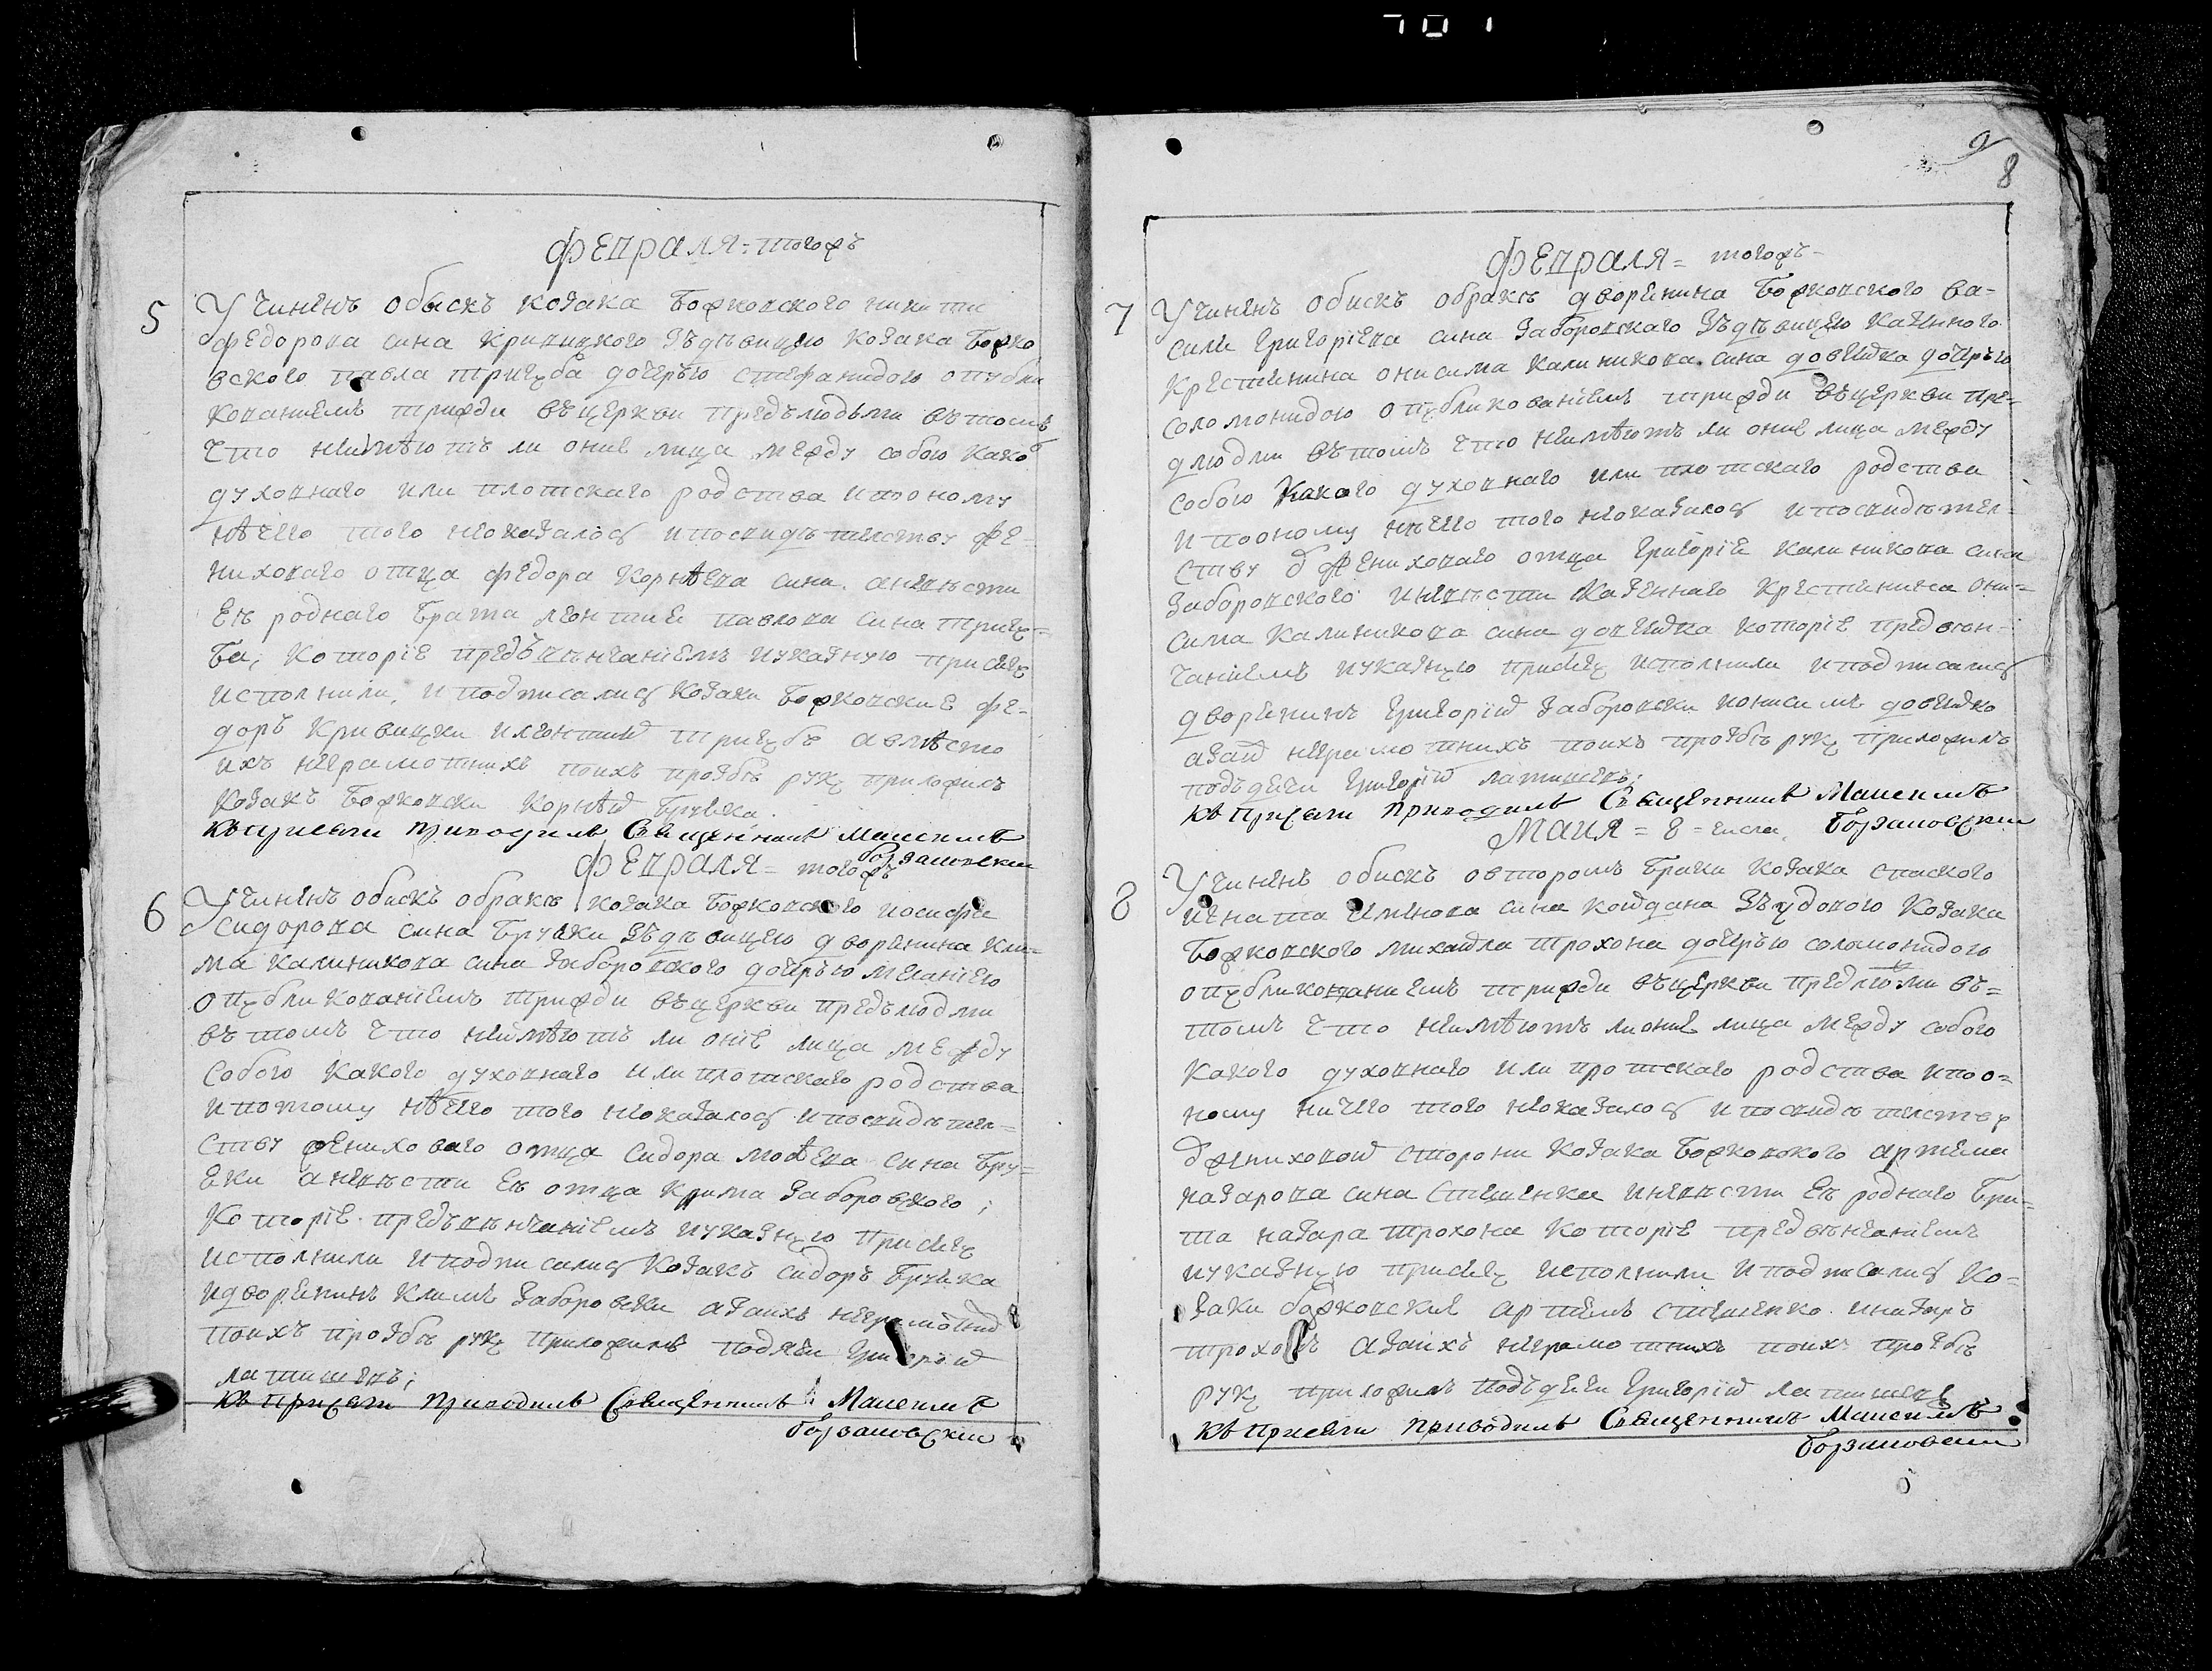 Февраля = тогожъ
5 Учиненъ обыскъ козака Божковского никити
федорова сина Кривицкого зъдѣвицею козака Божко
вского павла тригуба дочерью стефанидою опубли
кованиемъ трижди въцеркви предълюдьми вътомъ
что неимѣютъ ли оние лица между собою како
духовнаго или плотскаго родства ипооному
нѣчего того неоказалось ипосвидѣтелству же-
ниховаго отца федора Корнѣева сина. аневѣсти
Еѣ роднаго брата леонтия павлова сина тригу=
ба; Которiе предъвѣнчанiемъ иуказную присягу
исполнили, иподписались Козаки Божковские фе-
доръ Кривицки илеонтий тригубъ авмѣсто
ихъ неграмотнихъ поихъ прозбѣ руку приложилъ
Козакъ Божковски Корнѣй Брувка.
Къ присяги приводилъ Священникъ Максимъ
Борзаковски
Февраля = тогожъ
6 Учиненъ обискъ обракѣ козака Божковского иосифа
сидорова сина Брувки зъдѣвицею дворенина кли-
ма калиникова сина Заборовского дочерью меланiею
опубликованiемъ трижди въцеркви предълюдми
въ томъ что неимѣютъ ли онiе лица между
собою какого духовнаго или плотскаго родства
ипотому нѣчего того неоказалось ипосвидѣтел=
ству жениховаго отца Сидора мовѣева сина бру=
вки аневѣсти Еѣ отца Клима Заборовского;
Которiе предъвѣнчанiемъ иуказную присягу
исполнили иподписались Козакъ сидоръ Брувка
идворенинъ Климъ Заборовски азаихъ
поихъ прозбѣ руку приложилъ Григорiй
латишевъ;
Къ присяги приводилъ Священникъ Максимъ
Борзаковски
9
8
Февраля = тогожъ-
7 Учиненъ обискъ обракѣ дворенина Божковского ва-
сили Григорiева сина Заборовскаго Зъдѣвицею Казенного
Крестенина онисима калиникова сина довейдка дочерью
соломонидою опубликованiемъ трижди въцеркви пре-
длюдми вътомъ что неимѣютъ ли оние лица между
собою Какого духовнаго или плотскаго родства
ипооному нѣчего того неоказалось ипосвидѣтел-
ству жениховаго отца Григорiе калиникова сина
Заборовского иневѣсти Казеннаго Крестенина они=
сима калиникова сина довейдка которiе предвен-
чаниемъ иуказную присягу исполнили иподписались
дворенинъ Григорiй Заборовски ионисимъ довейдко
азаи неграмотнихъ поихъ прозбѣ руку приложилъ
подъдячи Григорiй латишевъ;
Къ присяги приводилъ Священникъ Максимъ
Борзаковски
Маия = 8 = числа
8 Учиненъ обискъ овторомъ браки козака спаского
игната сина койдана зъвдовою козака
Божковского михайла трохона дочерью соломонидою
опубликованиемъ трижди въцеркви предлюдми въ=
томъ что неимѣютъ лионие лица между собою
какого духовнаго или плотскаго родства ипоо=
ному ничего того неоказалось ипосвидѣтелству
жениховой сторони козака Божковского артема
назарова сина Стешенка иневѣсти Еѣ роднаго бра=
та назара трохона Которiе предвѣнчанiемъ
иуказную присягу исполнили иподписались Ко-
заки божковские артемъ стешенко иназаръ
трохонъ азаихъ неграмотнихъ поихъ прозбѣ
руку приложилъ подъдячи Григорiй латишевъ
Къ присяги приводилъ Священникъ Максимъ
Борзаковски